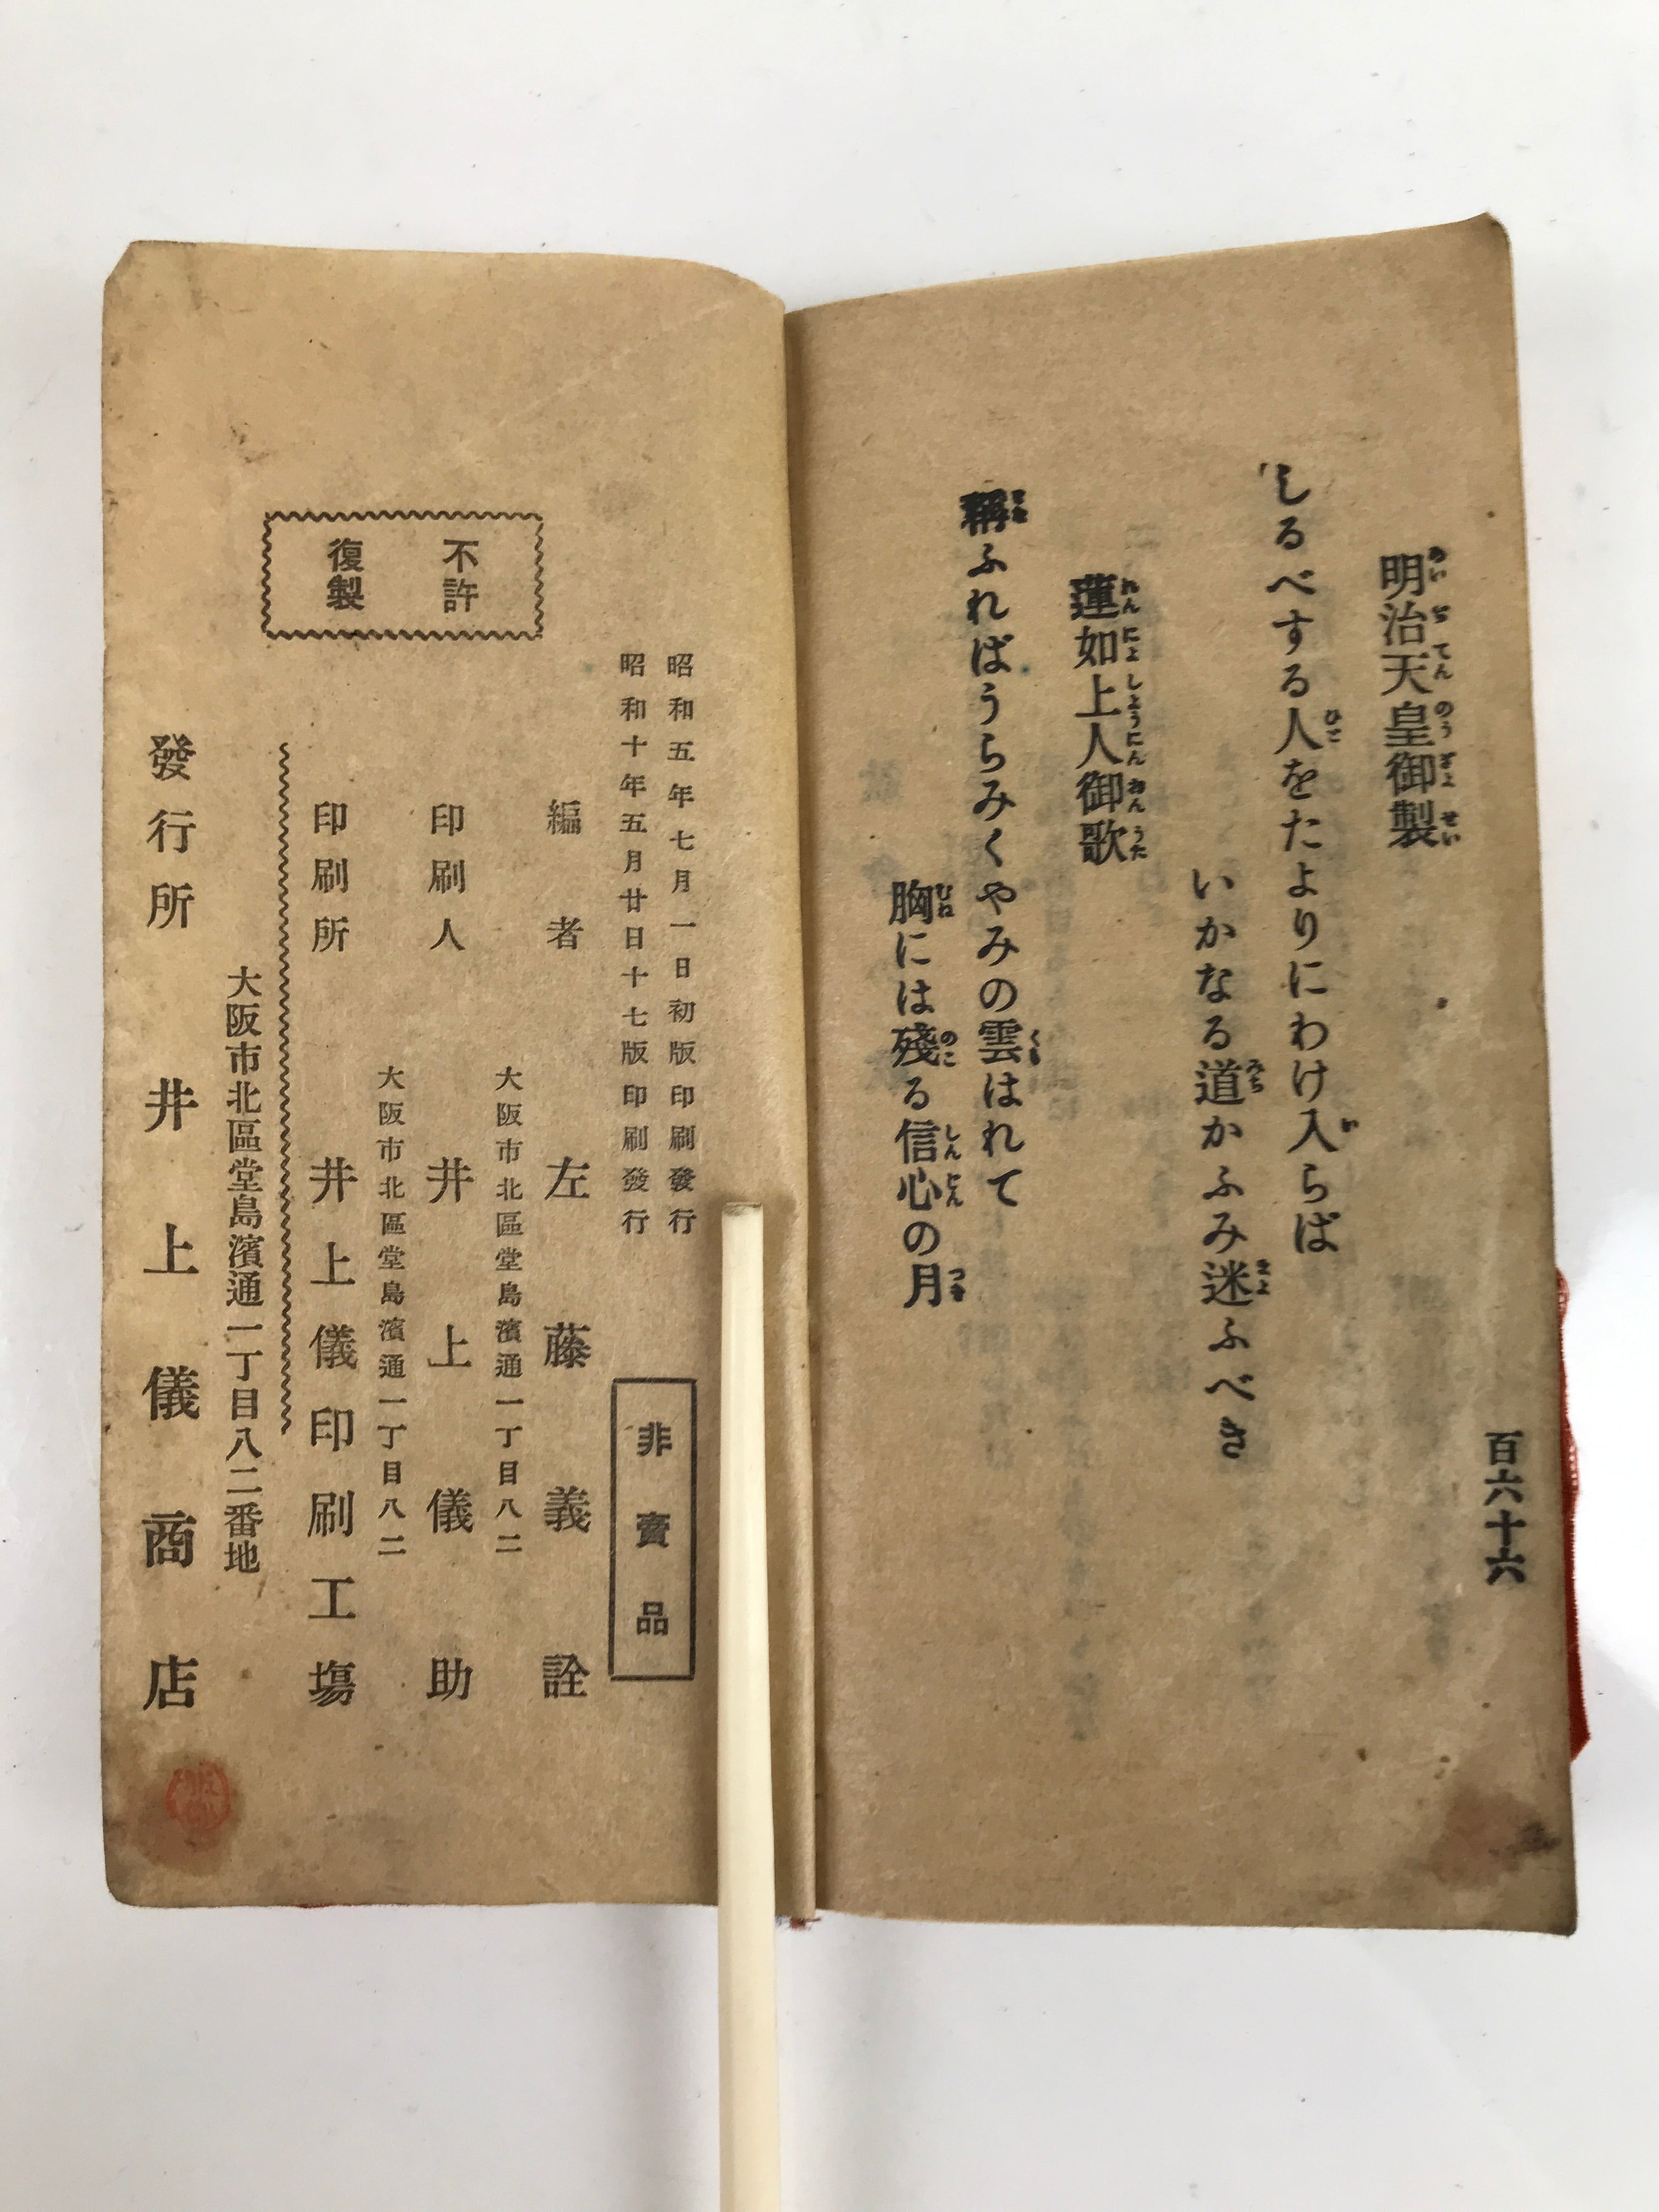 百六十六
明治天皇御製
しるべする人をたよりにわけ入らば
いかなる道かふみ迷ふべき
蓮如上人御歌
稱ふればうらみくやみの雲はれて
胸には殘る信心の月
昭和五年七月一日初版印刷發行
昭和十年五月廿日十七版印刷發行
非賣品
編者 左藤義詮
大阪市北區堂島濱通一丁目八二
印刷人 井上儀助
大阪市北區堂島濱通一丁目八二
印刷所 井上儀印刷工場
不許
復製
大阪市北區堂島濱通一丁目八二番地
發行所 井上儀商店